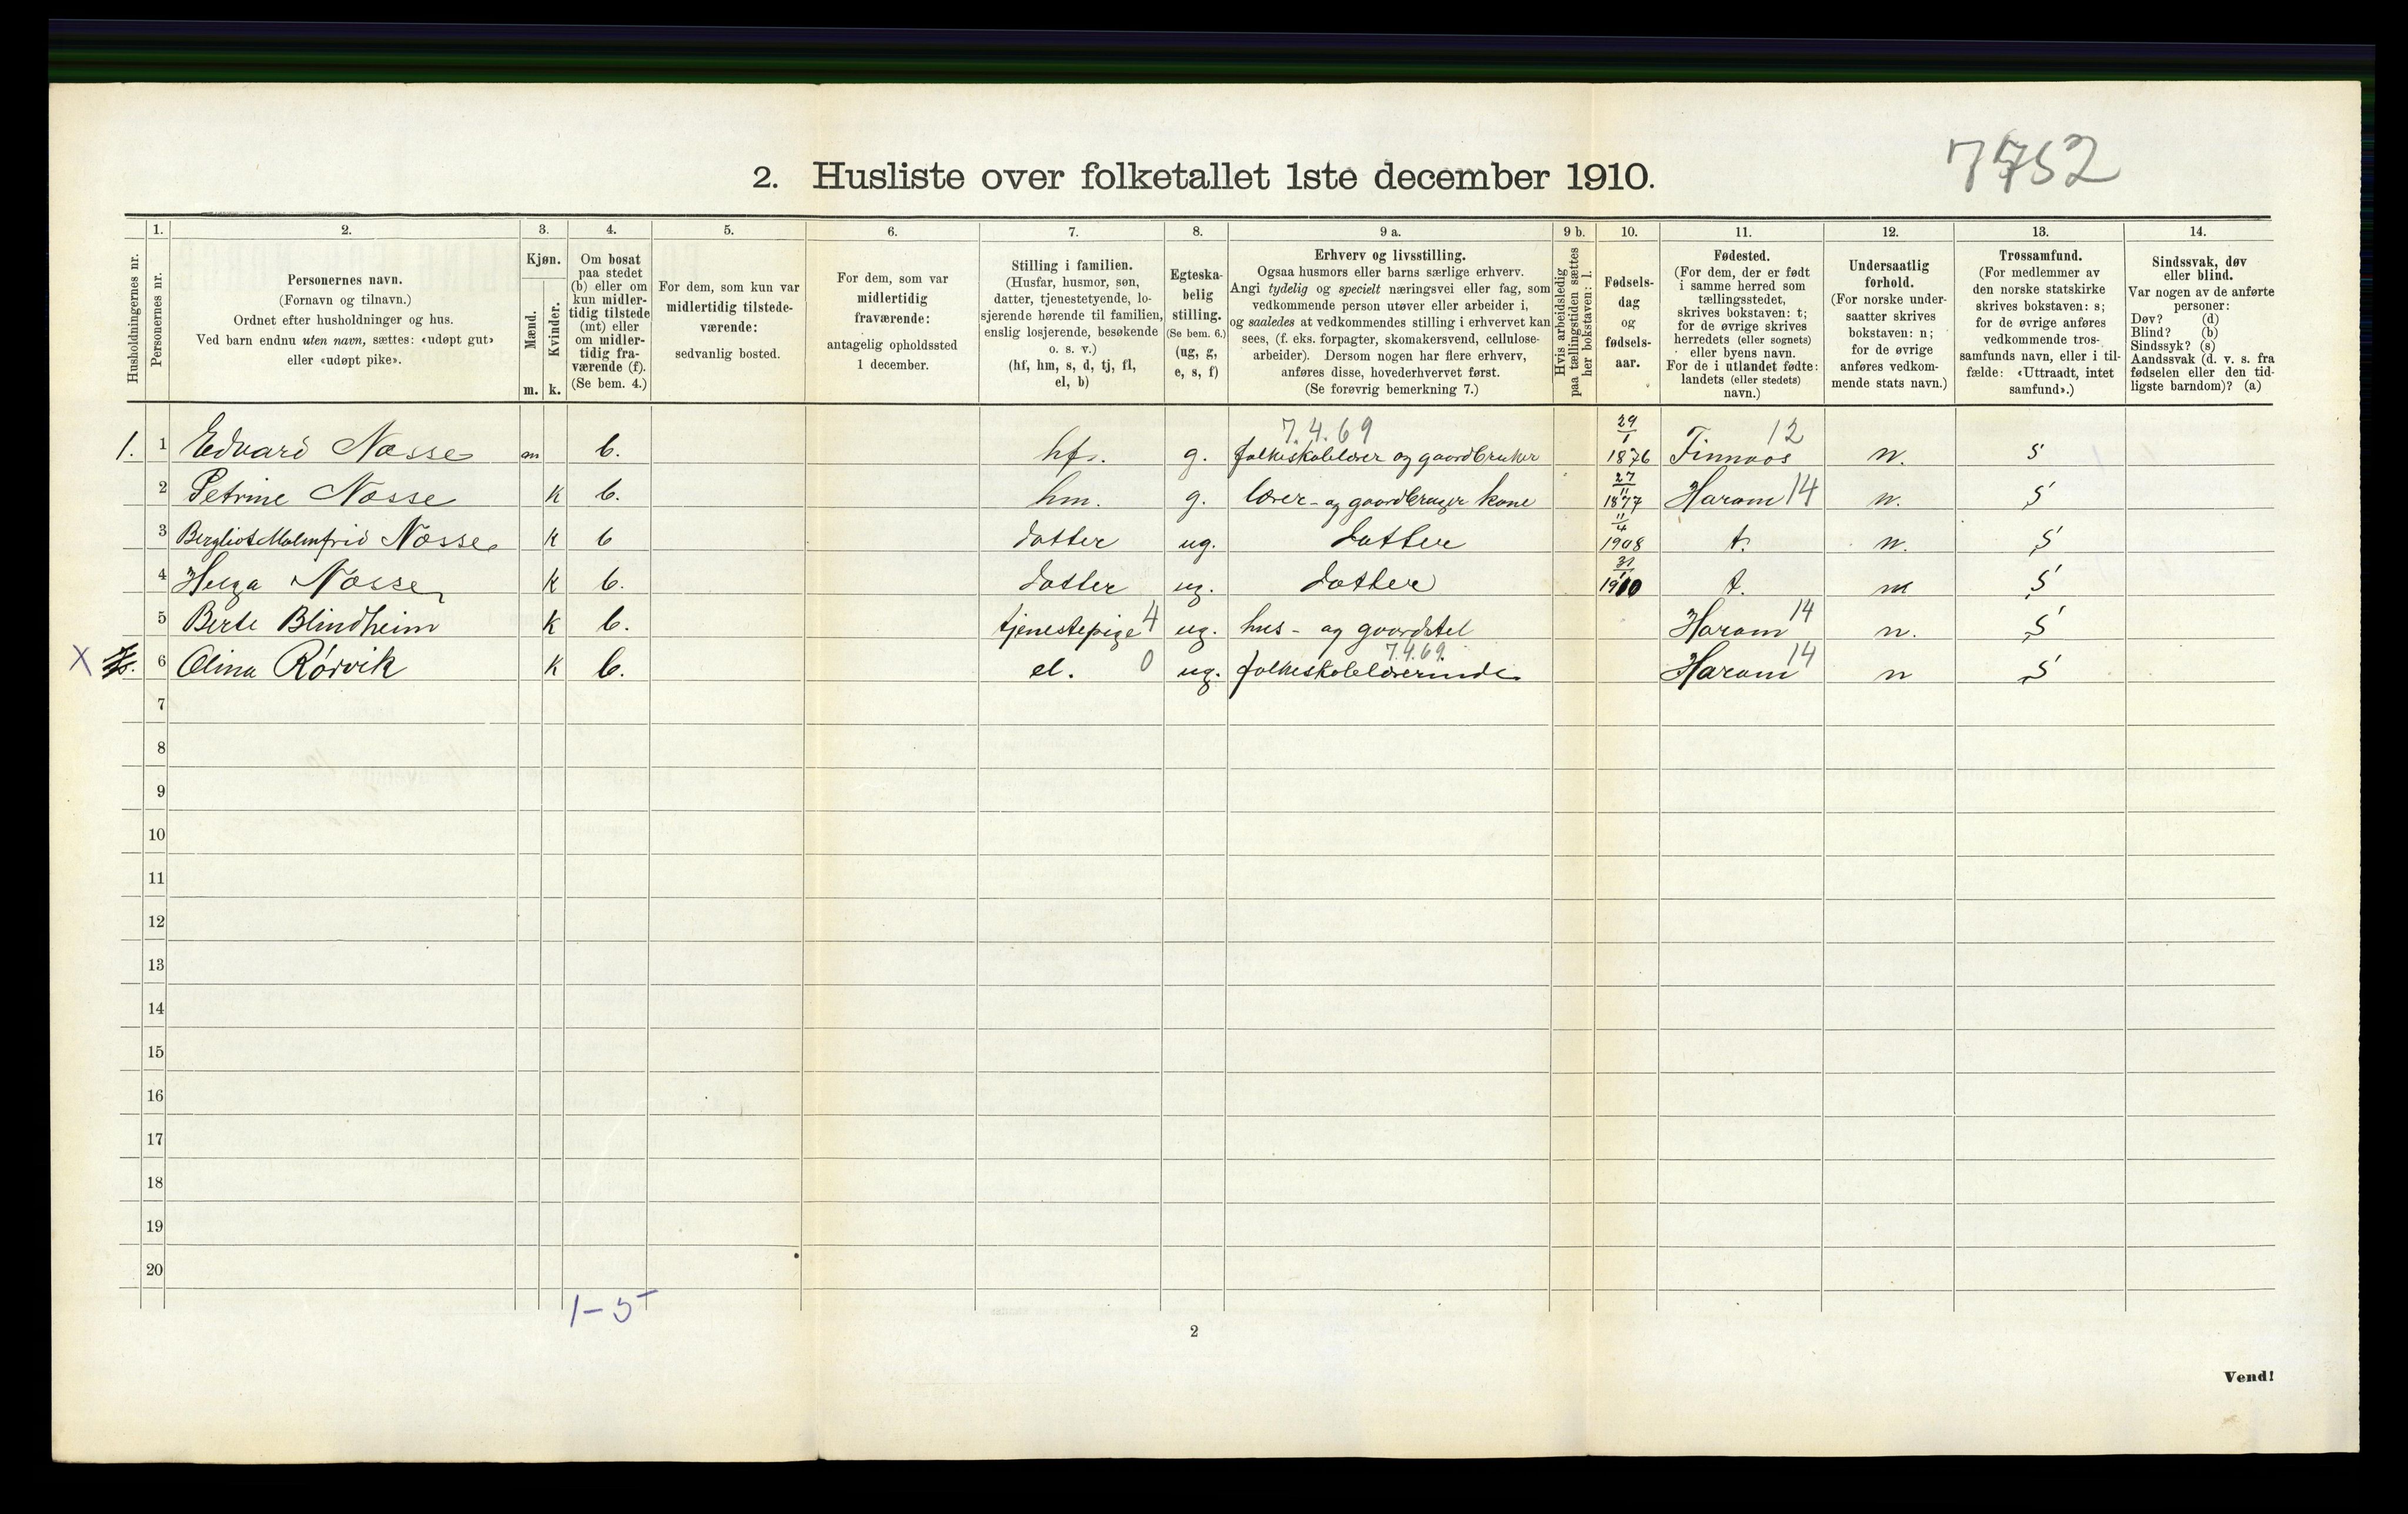 7752
2. Husliste over folketallet 1ste december 1910.
Husholdningernes nr.
1.
Personernes nr.
2.
Personernes navn.
(Fornavn og tilnavn.)
Ordnet efter husholdninger og hus.
Ved barn endnu uten navn, sættes: «udøpt gut»
eller «udøpt pike».
3.
Kjøn.
Mænd.
Kvinder.
m. k.
4.
Om bosat
paa stedet
(b) eller om
kun midler-
tidig tilstede
(mt) eller
om midler-
tidig fra-
værende (f).
(Se bem. 4.)
5.
For dem, som kun var
midlertidig tilstede-
værende:
sedvanlig bosted.
6.
For dem, som var
midlertidig
fraværende:
antagelig opholdssted
1 december.
7.
Stilling i familien.
(Husfar, husmor, søn,
datter, tjenestetyende, lo-
sjerende hørende til familien,
enslig losjerende, besøkende
o. s. v.)
(hf, hm, s, d, tj, fl,
el, b)
8.
Egteska-
belig
stilling.
(Se bem. 6.)
(ug, g,
e, s, f)
9 a.
Erhverv og livsstilling.
Ogsaa husmors eller barns særlige erhverv.
Angi tydelig og specielt næringsvei eller fag, som
vedkommende person utøver eller arbeider i,
og saaledes at vedkommendes stilling i erhvervet kan
sees, (f. eks. forpagter, skomakersvend, cellulose-
arbeider). Dersom nogen har flere erhverv,
anføres disse, hovederhvervet først.
(Se forøvrig bemerkning 7.)
9 b.
Hvis arbeidsledig
paa tællingstiden sættes
her bokstaven: l.
10.
Fødsels-
dag
og
fødsels-
aar.
11.
Fødested.
(For dem, der er født
i samme herred som
tællingsstedet,
skrives bokstaven: t;
for de øvrige skrives
herredets (eller sognets)
eller byens navn.
For de i utlandet fødte:
landets (eller stedets)
navn.)
12.
Undersaatlig
forhold.
(For norske under-
saatter skrives
bokstaven: n;
for de øvrige
anføres vedkom-
mende stats navn.)
13.
Trossamfund.
(For medlemmer av
den norske statskirke
skrives bokstaven: s;
for de øvrige anføres
vedkommende tros-
samfunds navn, eller i til-
fælde: «Uttraadt, intet
samfund».)
14.
Sindssvak, døv
eller blind.
Var nogen av de anførte
personer:
Døv? (d)
Blind? (b)
Sindssyk? (s)
Aandssvak (d. v. s. fra
fødselen eller den tid-
ligste barndom)? (a)
1. 1 Edvard Nosse m b. hf. g. 7.4.69 folkeskolelærer og gaardbruker 29/1 1876 Finnoos 12 n. S
2 Petrine Nosse k b. hm. g. lærer- og gaardbruger kone 27/11 1877 Haram 14 n. S
3 Bergliot Malmfrid Nosse k b datter ug. Datter 11/4 1908 t. n. S
4 Helga Nosse k b. datter ug. datter 1910 t. n S
5 Berte Blindheim k b. tjenestepige 4 ug. hus- og gaardstel Haram 14 n. S
X 6 Olina Rörvik k b. el. 0 ug. 7.4.69. folkeskolelærerinde Haram 14 n S
7
8
9
10
11
12
13
14
15
16
17
18
19
20
1-5
2
Vend!